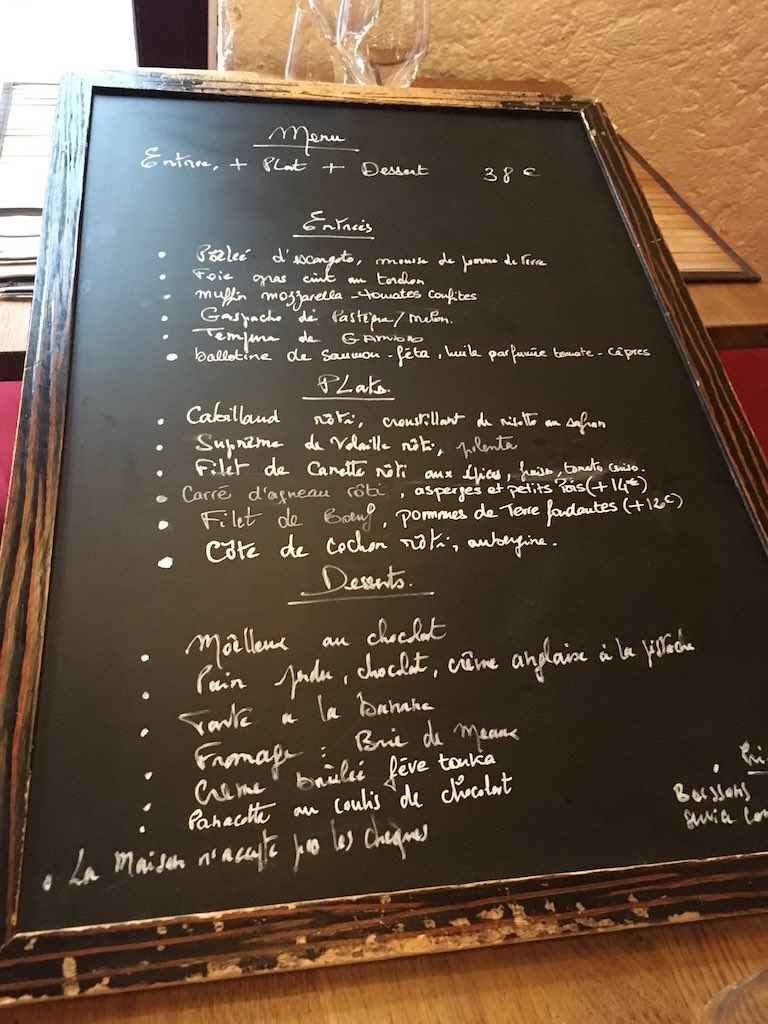 Menu
Entree, + Plat + Dessert 38 €
Entrées
• Pôêleé d'escargots, mousse de pomme de terre
• Foie gras cuit au torchon
• muffin mozzarella - tomates confites
• Gaspacho de Pastèque/melon.
• Tempura de GAMBAS
• ballotine de saumon - féta, huile parfumée tomate - câpres
Plats.
• Cabillaud rôti, croustillant de risotto au safran
• Suprême de Volaille rôti, polenta
• Filet de Canette rôti aux épices,
• Carré d'agneau rôti, asperges et petits Pois (+14€)
• Filet de Boeuf, pommes de Terre fondantes (+12€)
• Côte de cochon rôti, aubergine.
Desserts.
• Môelleux au chocolat
• Pain perdu, chocolat, crème anglaise à la pistache
• Tarte a la banane
• Fromage : Brie de Meaux
• Crème brûleé fève tonka
• Panacotta au coulis de chocolat
• La Maison n'accepte pas les cheques
Boissons